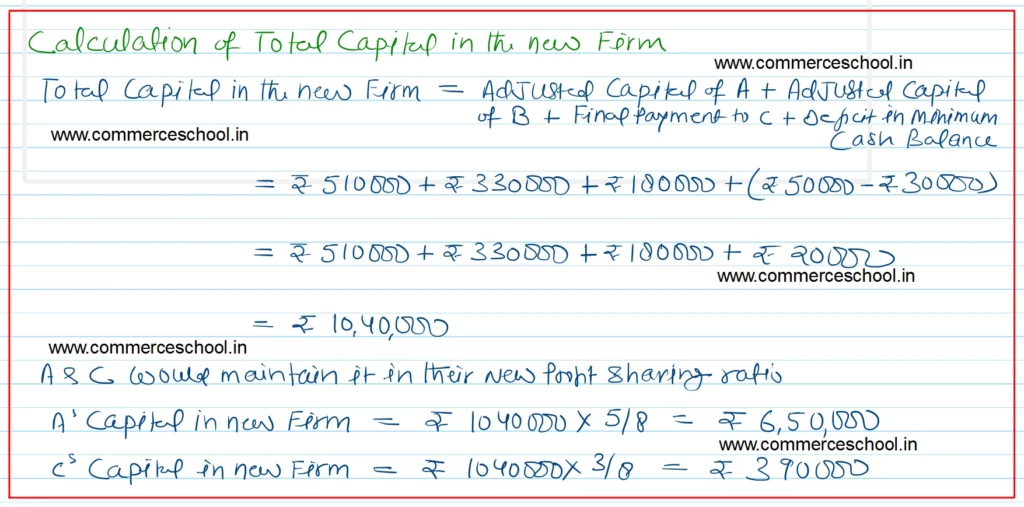 Calculation of Total Capital in the new Firm
www.commerceschool.in
Total Capital in the new Firm = Adjusted Capital of A + Adjusted Capital
of B + Final payment to C + Deficit in Minimum
Cash Balance
www.commerceschool.in
= ₹ 510000 + ₹ 330000 + ₹ 180000 + (₹ 50000 - ₹ 30000)
= ₹ 510000 + ₹ 330000 + ₹ 180000 + ₹ 20000
www.commerceschool.in
= ₹ 10,40,000
www.commerceschool.in
A & C would maintain it in their New Profit Sharing ratio
A's Capital in new Firm = ₹ 1040000 × 5/8 = ₹ 6,50,000
www.commerceschool.in
C's Capital in new Firm = ₹ 1040000 × 3/8 = ₹ 390000